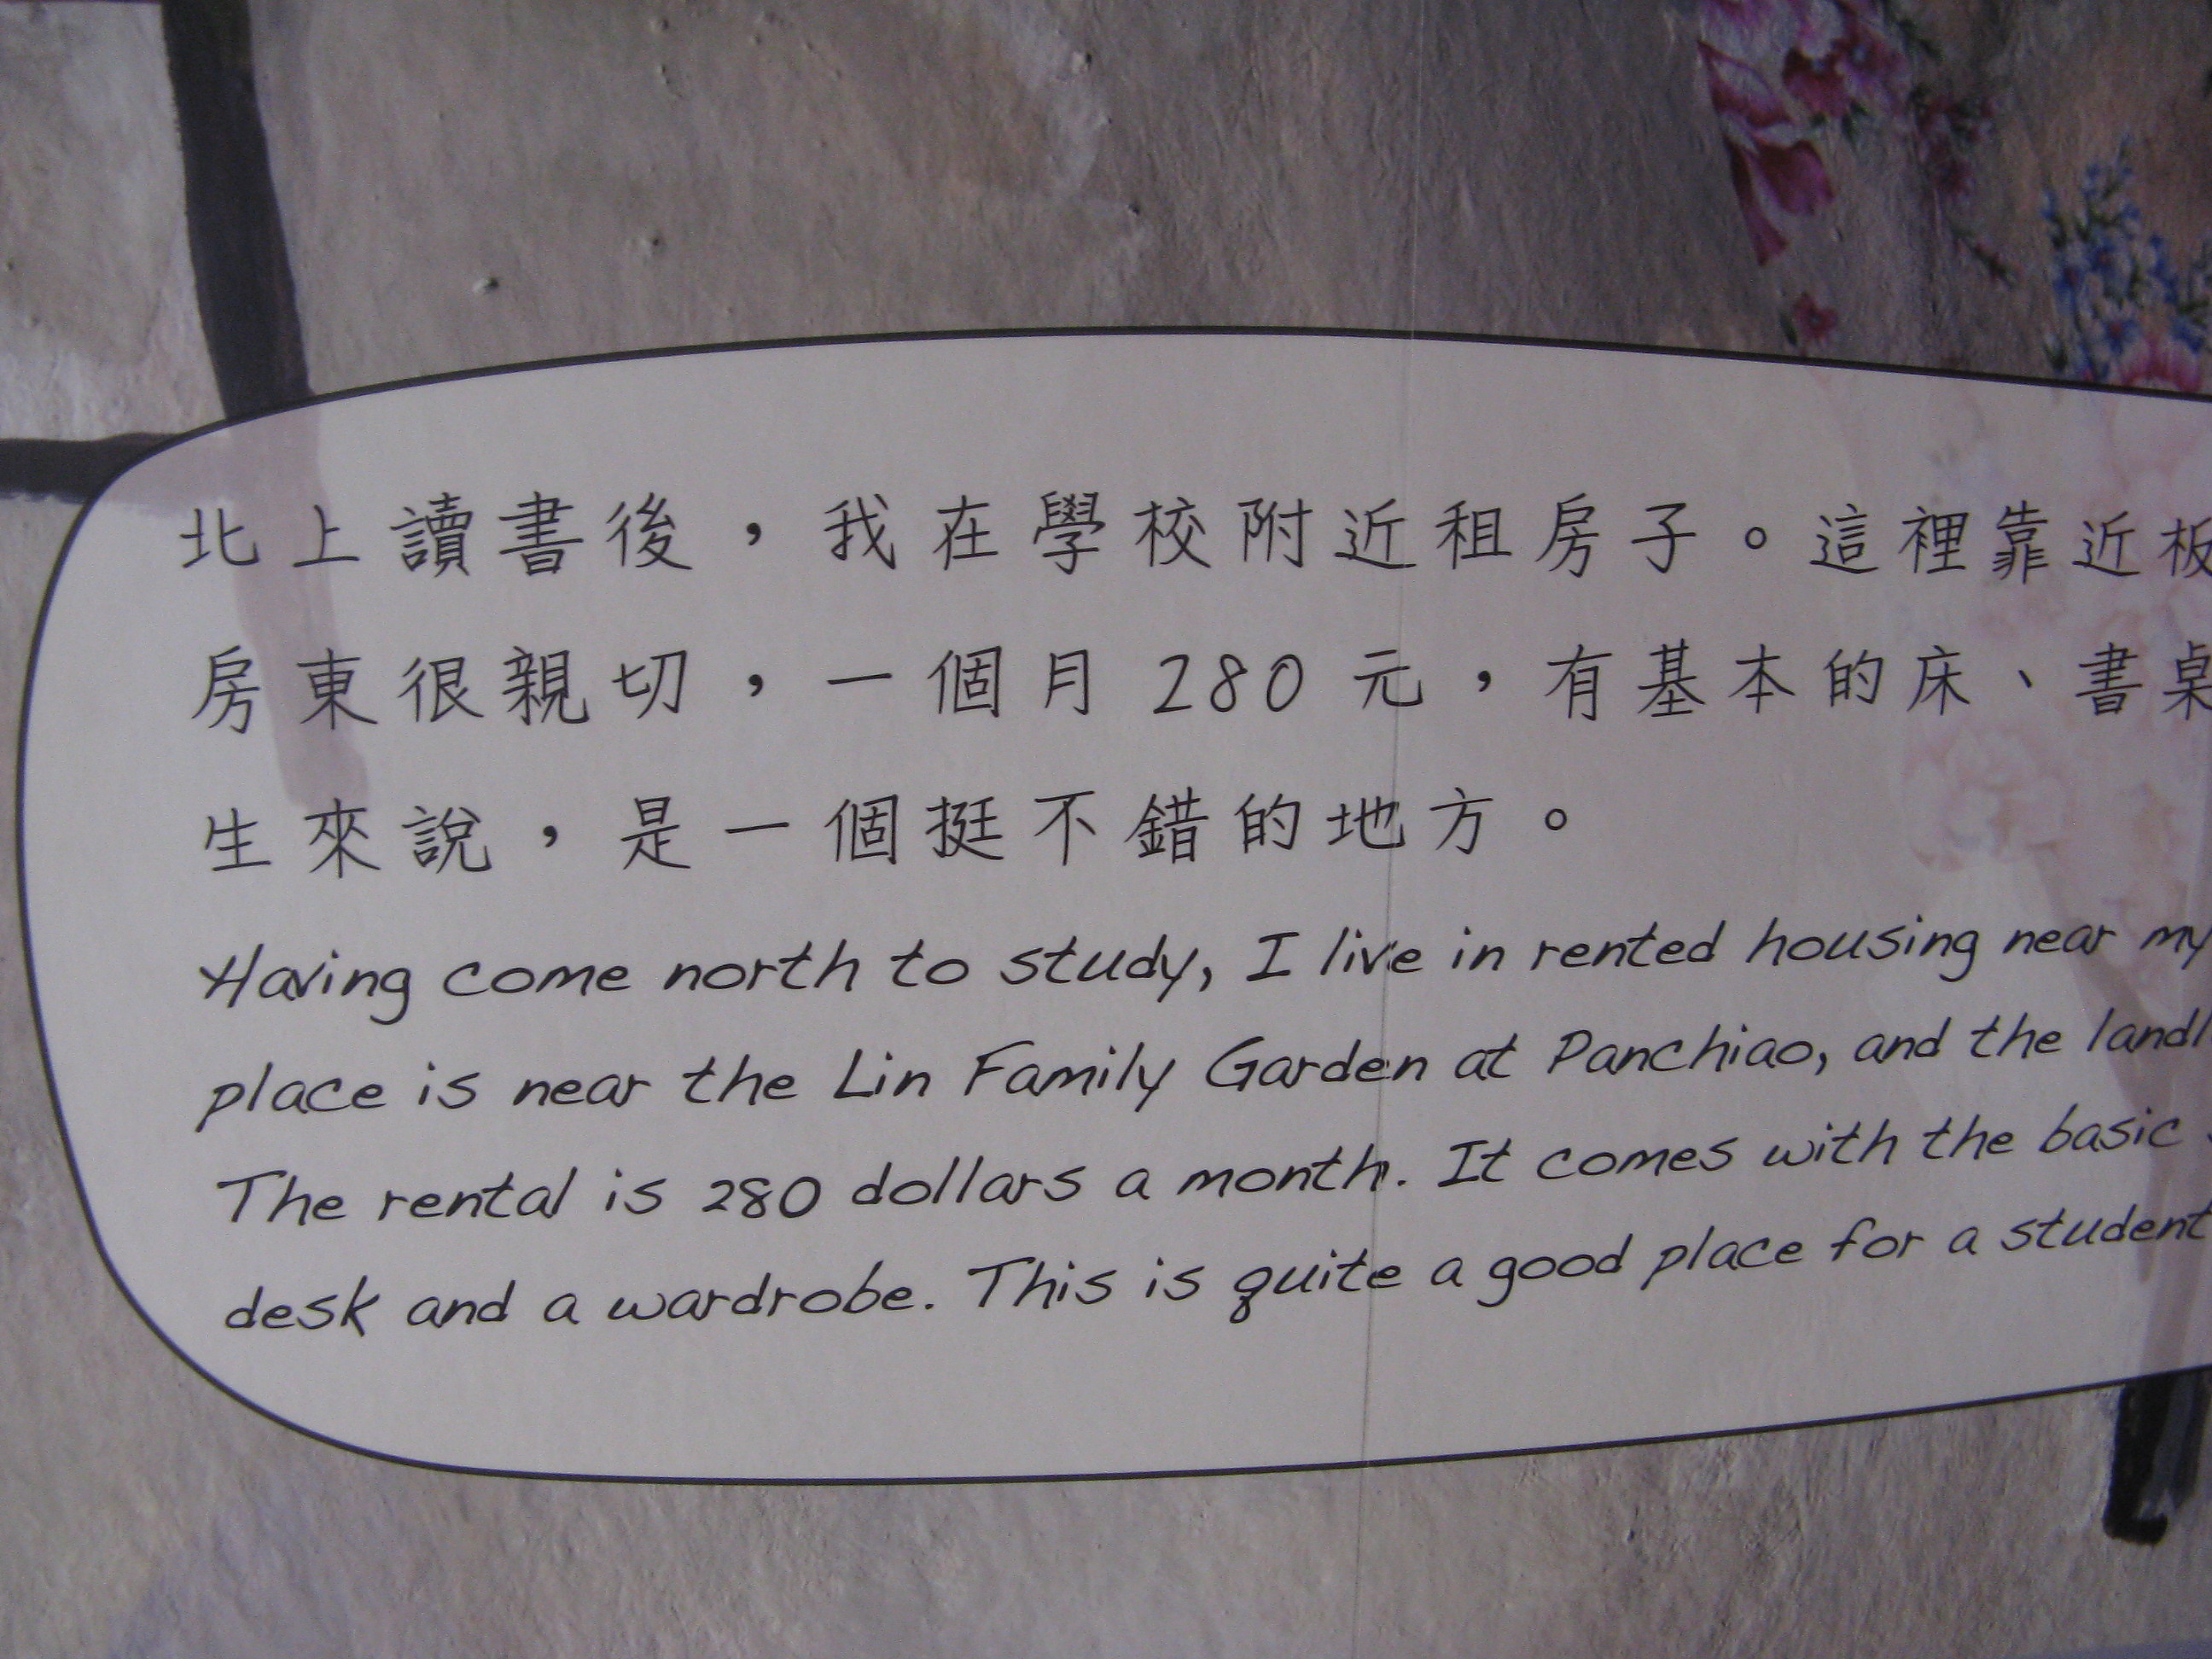 北上讀書後，我在學校附近租房子。這裡靠近板
房東很親切，一個月 280 元，有基本的床、書桌
生來說，是一個挺不錯的地方。
Having come north to study, I live in rented housing near my
place is near the Lin Family Garden at Panchiao, and the landl
The rental is 280 dollars a month. It comes with the basic
desk and a wardrobe. This is quite a good place for a student